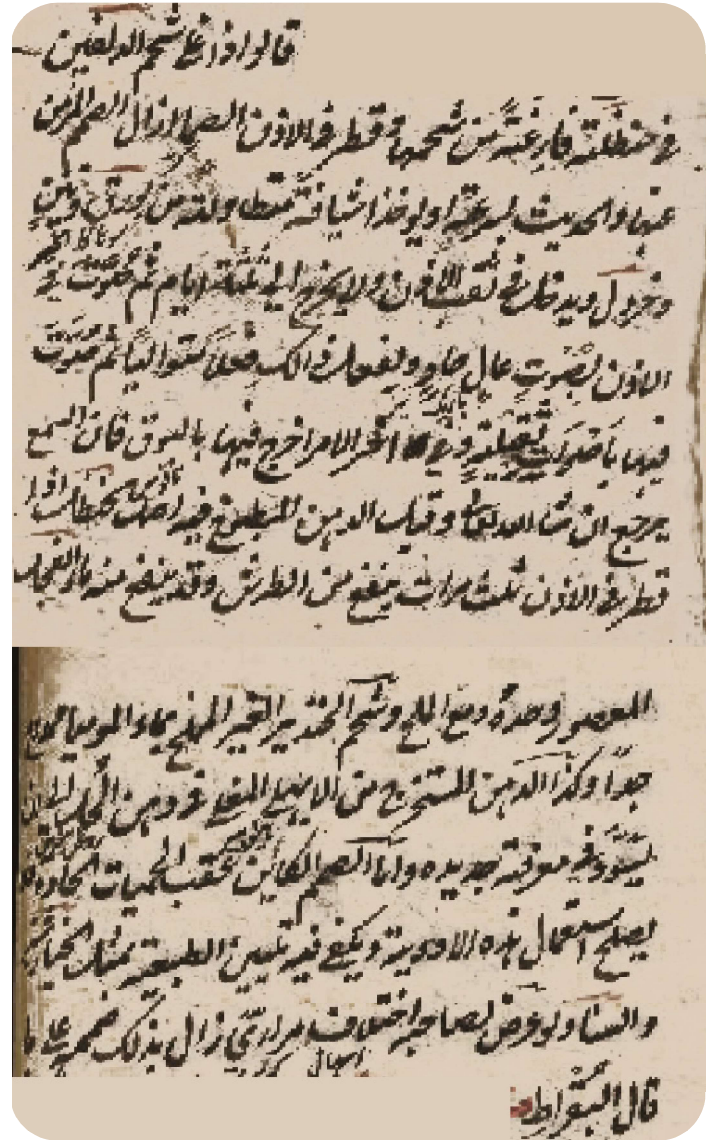 قالوا اذا غلي شحم الدلفين
في حنظلة فارغة من شحمها وقطر في الاذن الصما ازال الصمم المزمن
عنها والحديث بسرعة او يوخذ اشيافة متطاولة من بورق وتين
وخردل ويدخل في ثقب الاذن ولا يخرج الي ثلثة ايام ثم يصوت في
الاذن بصوت عال حاد ويفعل ذالك فعلا متواليا ثم يصوت
فيها باصوات ثقيلة وفي اخر الامر اخرج فيها بالبوق فان السمع
يرجع ان شا الله تعالي وقيل الدهن المطبوخ فيه الحنظل اذا
قطر في الاذن ثلث مرات ينفع من الطرش وقد ينفع منه ماء الفجل
المعصور وحده ومع الملح وشحم الخنزير الغير المملح بماء الموميا
جدا وكذا الدهن المستخرج من الابهل المغلي في دهن الحل الي ان
يسود في مغرفة جديده واما الصمم الكاين عقب الحميات الحادة
يصلح استعمال هذه الادوية ويكفي فيه تليين الطبيعة بمثل الخيار شنبر
والسنا ولو عرض لصاحبه اختلاف مراري زال بذلك صممه علي ما
اسهال
قال البقراط